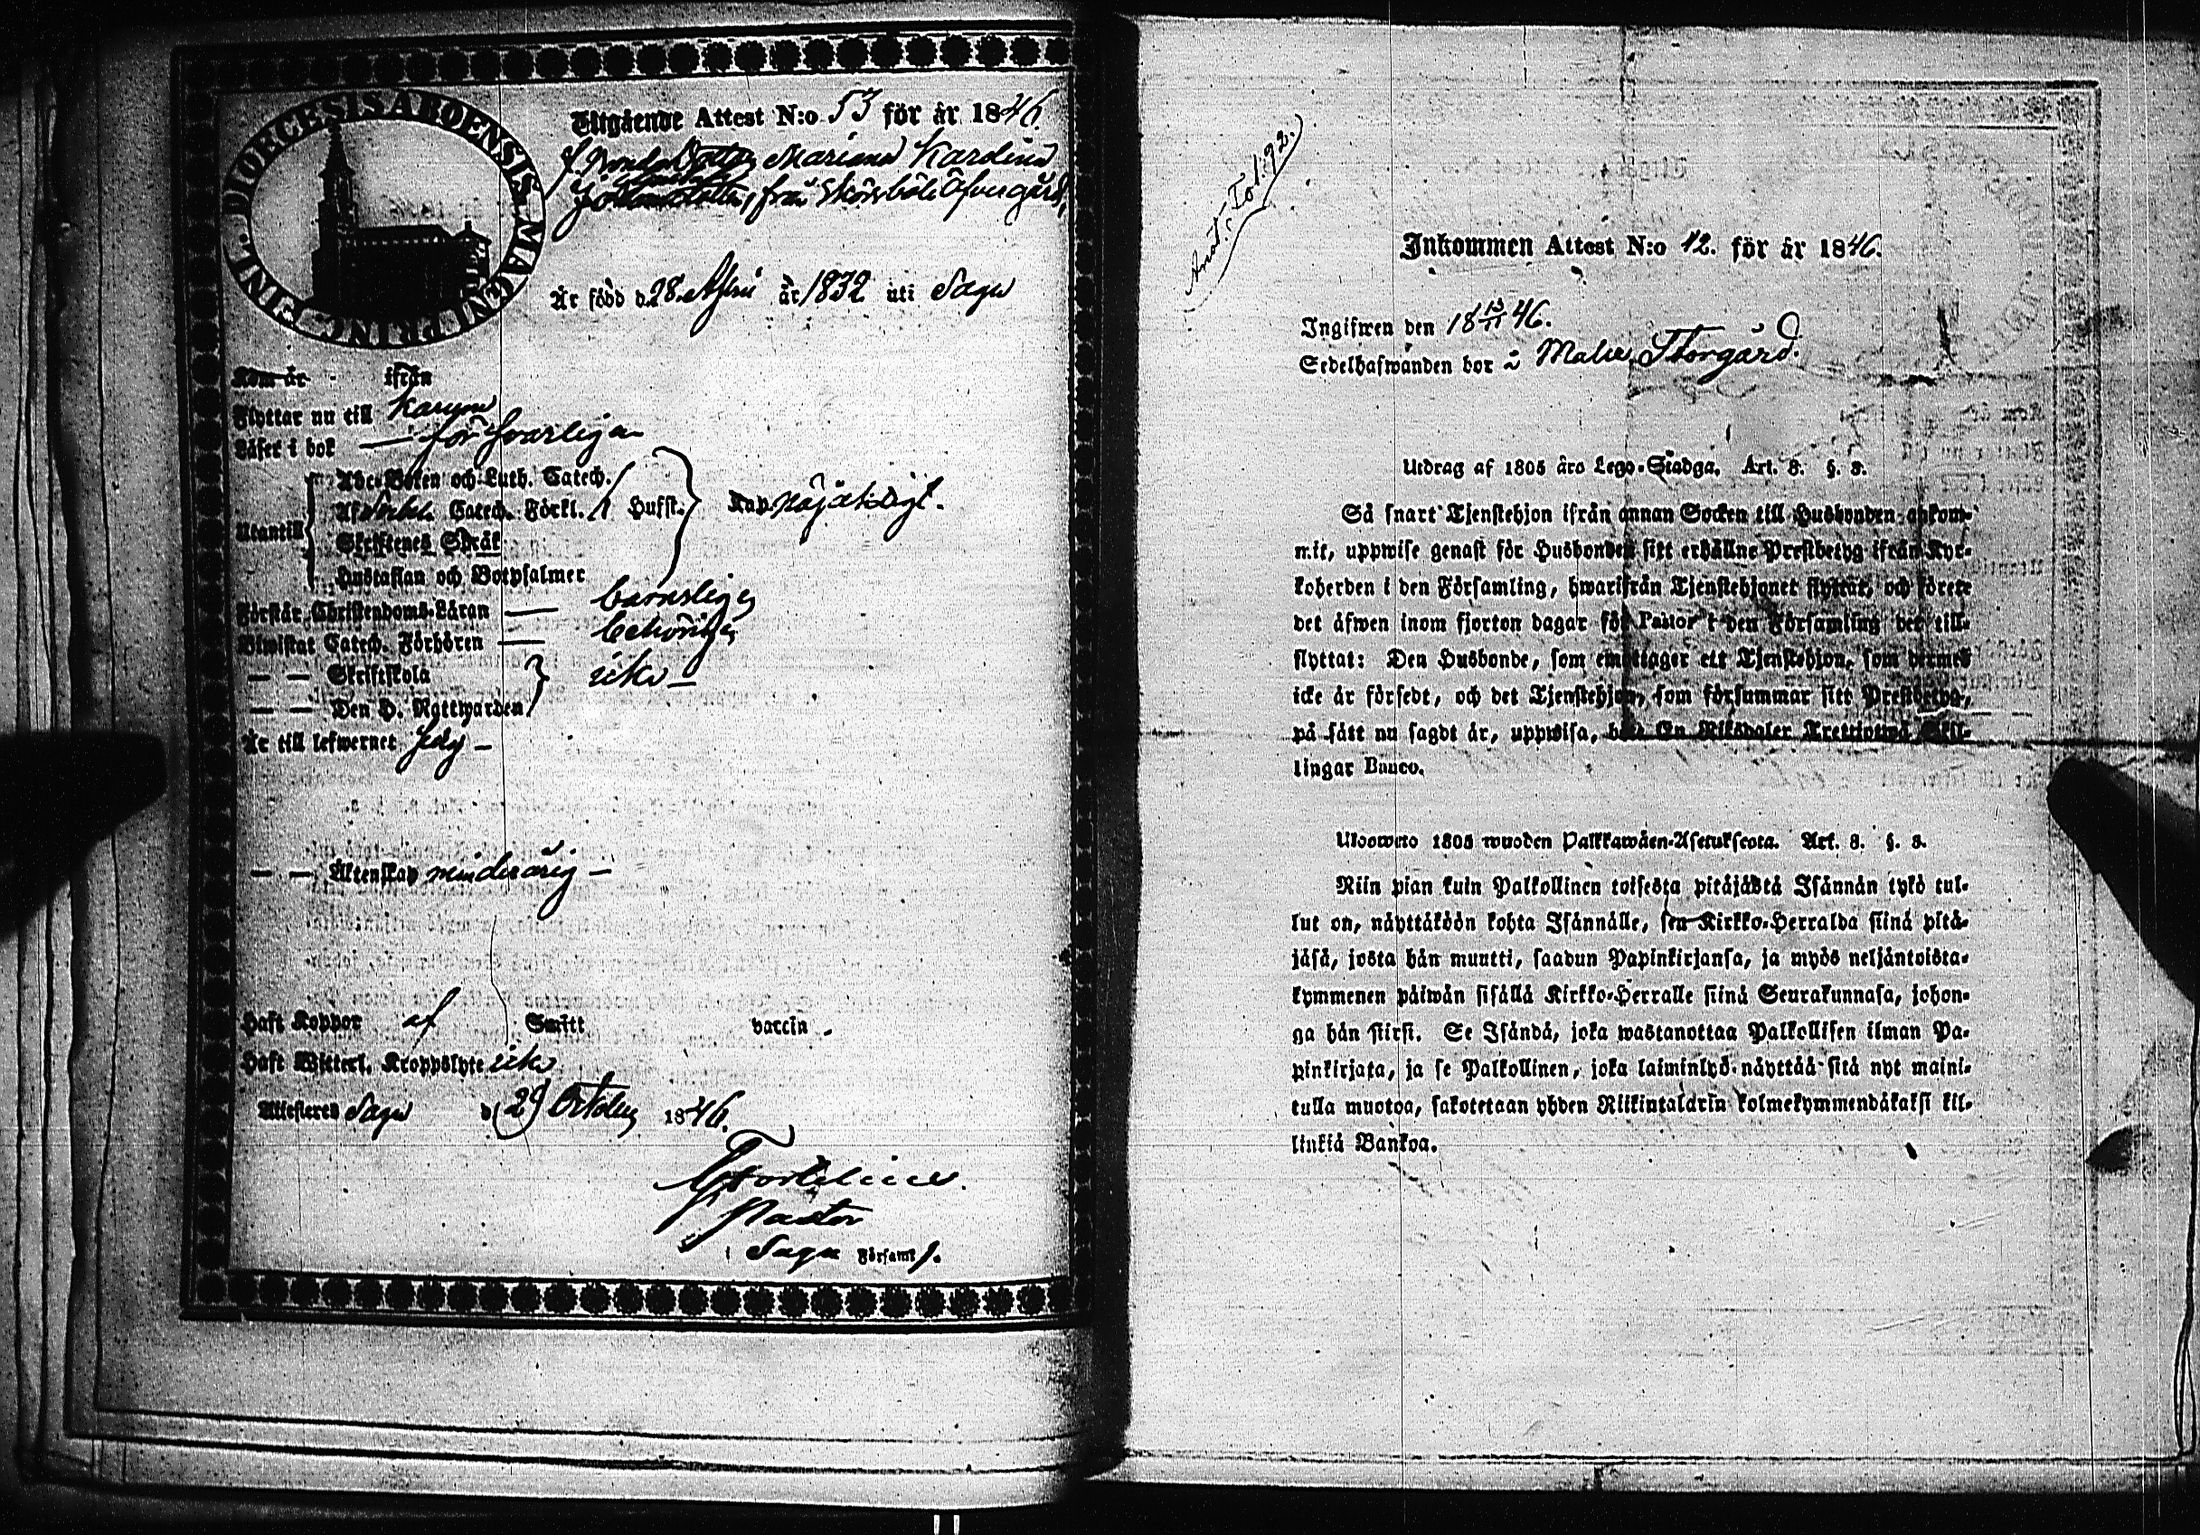 DIOECESIS ABOENSIS MAGNI PRINC. FINL.
Utgående Attest N:o 53 för år 1846.
f. Bonda Dottren Mariana Karolina
Johansdotter, från Skörböle Öfvergård,
Är född d. 28 April år 1832 uti Sagu
Kom år ifrån
Flyttar nu till Karuna
Läser i bok — försvarligen
Utantill
Abc-Boken och Luth. Catech.
Af Catech. Förkl. Hufst. Kap. någorl.
Skriftenes Språk
Hustaflan och Botpsalmer
Förstår Christendoms-Läran — barnsligen
Biwistat Catech. Förhören — behörigen
— — Skriftskola icke —
— — Den H. Nattwarden
Är till lefwernet fräj —
— — Äktenskap minderårig —
Haft Koppor af Smitt vaccin.
Haft Witterl. Kroppslyte icke
Attesteras Sagu d. 29 October 1846.
Pastor
i Sagu Församl.
Fol. 92.
Inkommen Attest N:o 12. för år 1846.
Ingifwen den 18 15/11 46.
Sedelhafwanden bor i Malu Storgård.
Utdrag af 1805 års Lego-Stadga. Art. 8. §. 8.
Så snart Tjenstehjon ifrån annan Socken till Husbonden ankom-
mit, uppwise genast för Husbonden sitt erhållne Prestbetyg ifrån Kyr-
koherden i den Församling, hwarifrån Tjenstehjonet flyttat, och förete
det äfwen inom fjorton dagar för Pastor i den Församling det till-
flyttat: Den Husbonde, som emottager ett Tjenstehjon, som dermed
icke är försedt, och det Tjenstehjon, som försummar sitt Prestbetyg,
på sätt nu sagdt är, uppwisa, böte En Riksdaler Trettiotwå Skil-
lingar Banco.
Ulosweto 1805 wuoden Palkkawäen-Asetuksesta. Art. 8. §. 8.
Niin pian kuin Palkollinen toisesta pitäjästä Isännän tykö tul-
lut on, näyttäköön kohta Isännälle, sen Kirkko-Herralda siinä pitä-
jäsä, josta hän muutti, saadun Papinkirjansa, ja myös neljäntoista-
kymmenen päiwän sisällä Kirkko-Herralle siinä Seurakunnasa, johon-
ga hän siirsi. Se Isändä, joka wastanottaa Palkollisen ilman Pa-
pinkirjata, ja se Palkollinen, joka laiminlyö näyttää sitä nyt maini-
tulla muotoa, sakotetaan yhden Riikintaldrin kolmekymmendäkaksi kil-
linkiä Bankoa.